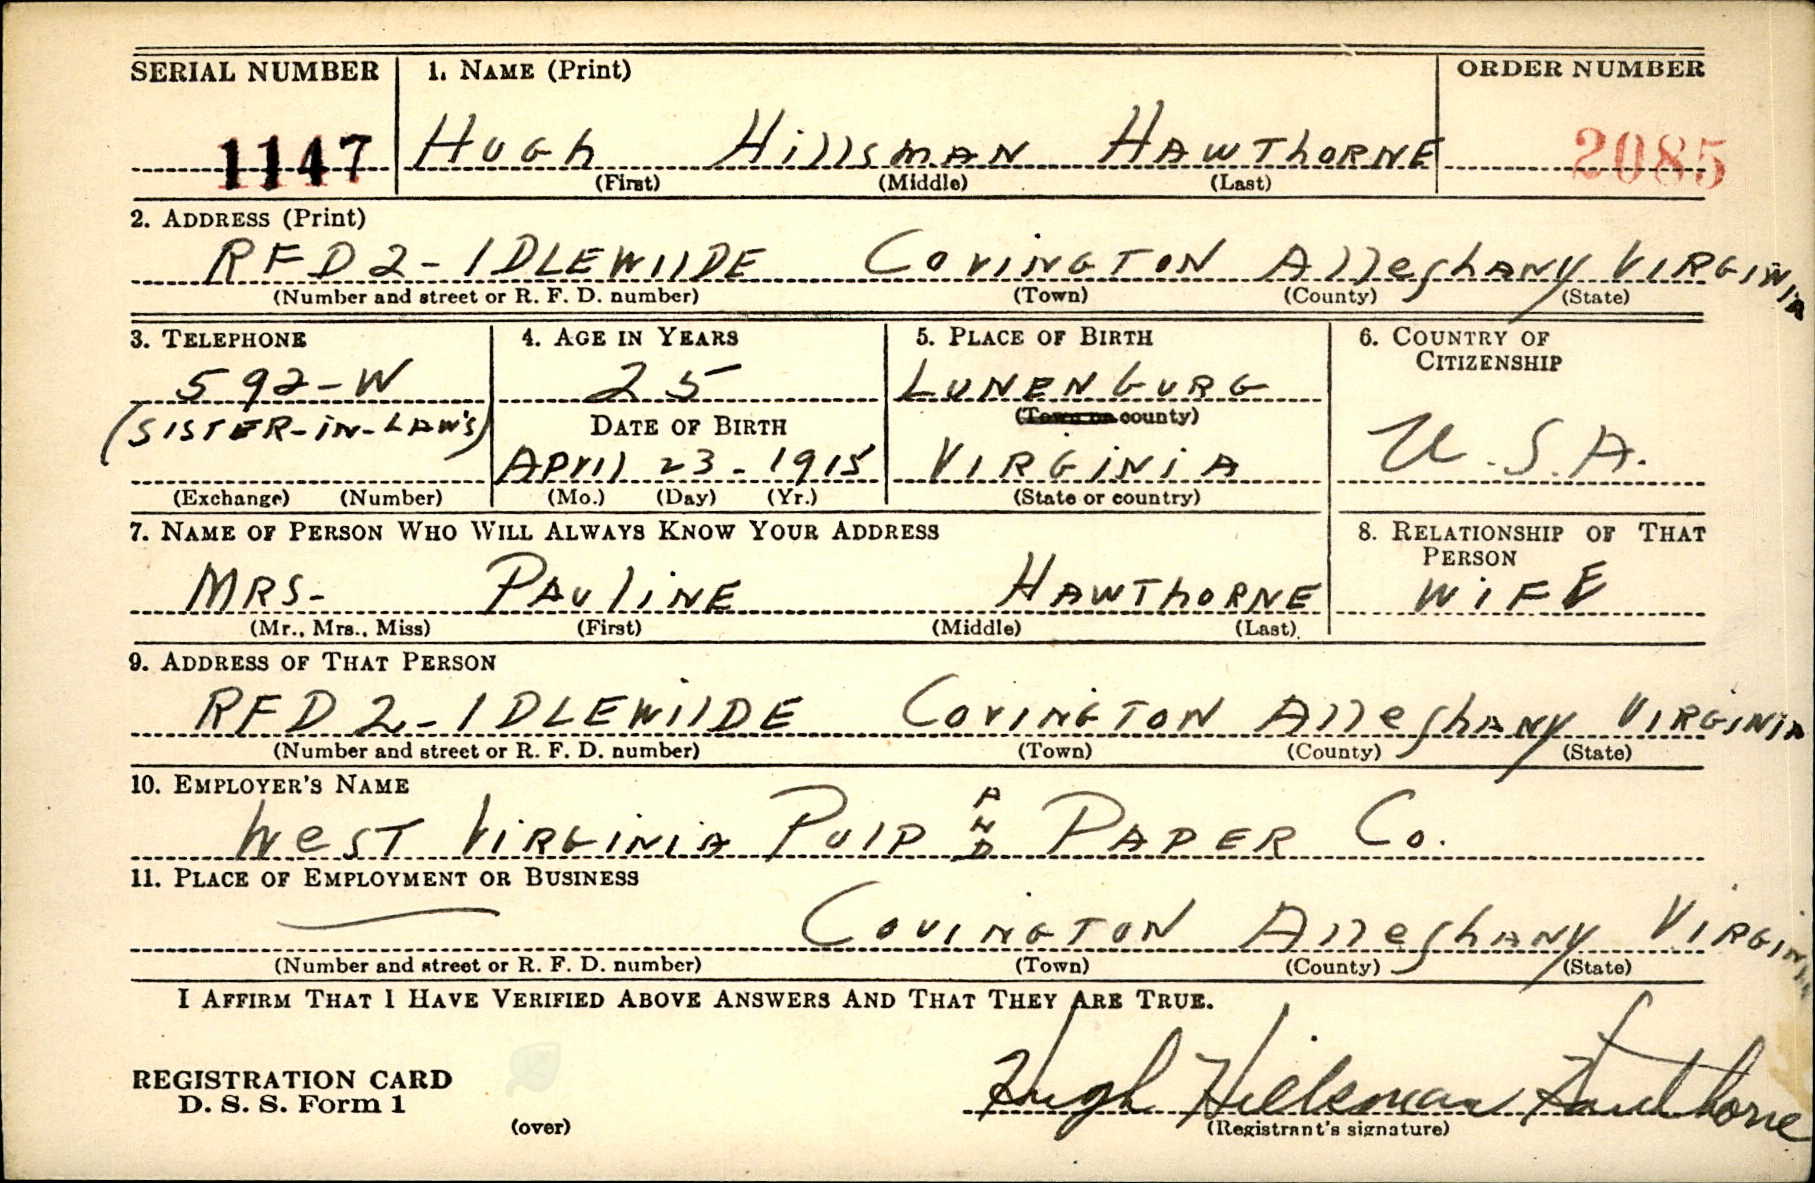 SERIAL NUMBER 1. NAME (Print) ORDER NUMBER
1147 HUGh HillsMAN HAWThORNE 2085
(First) (Middle) (Last)
2. ADDRESS (Print)
RFD 2 - IDLEWilDE COVINGTON AlleghANY VIRGINIA
(Number and street or R. F. D. number) (Town) (County) (State)
3. TELEPHONE 4. AGE IN YEARS 5. PLACE OF BIRTH 6. COUNTRY OF
CITIZENSHIP
592-W 25 LUNENbURG
(SISTER-iN-LAW'S) DATE OF BIRTH (Town or county) U.S.A.
APril 23 - 1915 VIRGiNiA
(Exchange) (Number) (Mo.) (Day) (Yr.) (State or country)
7. NAME OF PERSON WHO WILL ALWAYS KNOW YOUR ADDRESS 8. RELATIONSHIP OF THAT
PERSON
MRS- PAuliNE HAWThoRNE WiFE
(Mr., Mrs., Miss) (First) (Middle) (Last)
9. ADDRESS OF THAT PERSON
RFD 2 - IDLEWilDE COVINGTON AlleghANY VIRGINIA
(Number and street or R. F. D. number) (Town) (County) (State)
10. EMPLOYER'S NAME
WeST VIRGINIA PUlP AND PAPER Co.
11. PLACE OF EMPLOYMENT OR BUSINESS
COVINGTON AlleghANY VIRGINIA
(Number and street or R. F. D. number) (Town) (County) (State)
I AFFIRM THAT I HAVE VERIFIED ABOVE ANSWERS AND THAT THEY ARE TRUE.
REGISTRATION CARD Hugh Hillsman Hawthorne
D. S. S. Form 1
(over) (Registrant's signature)